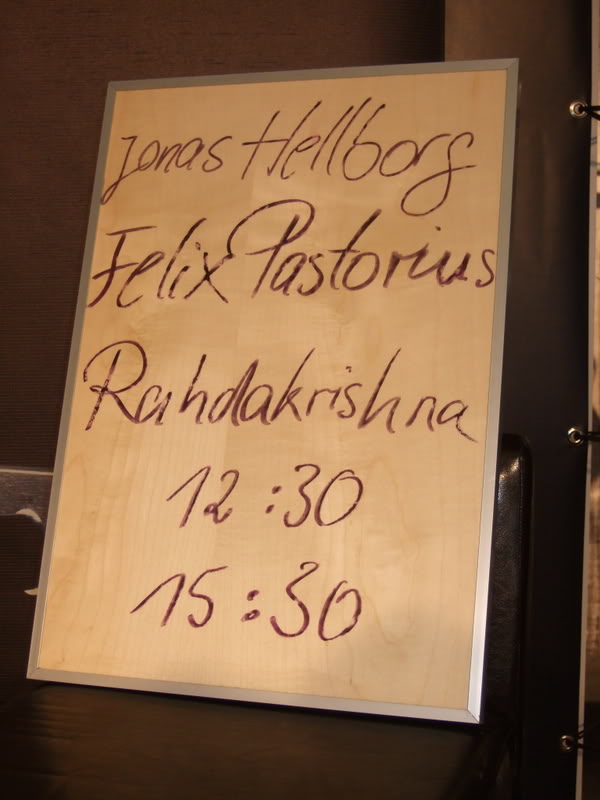 Jonas Hellborg
Felix Pastorius
Rahdakrishna
12:30
15:30